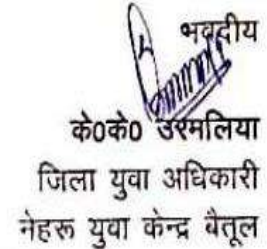 भवदीय
के0के0 उरमलिया
जिला युवा अधिकारी
नेहरू युवा केन्द्र बैतूल